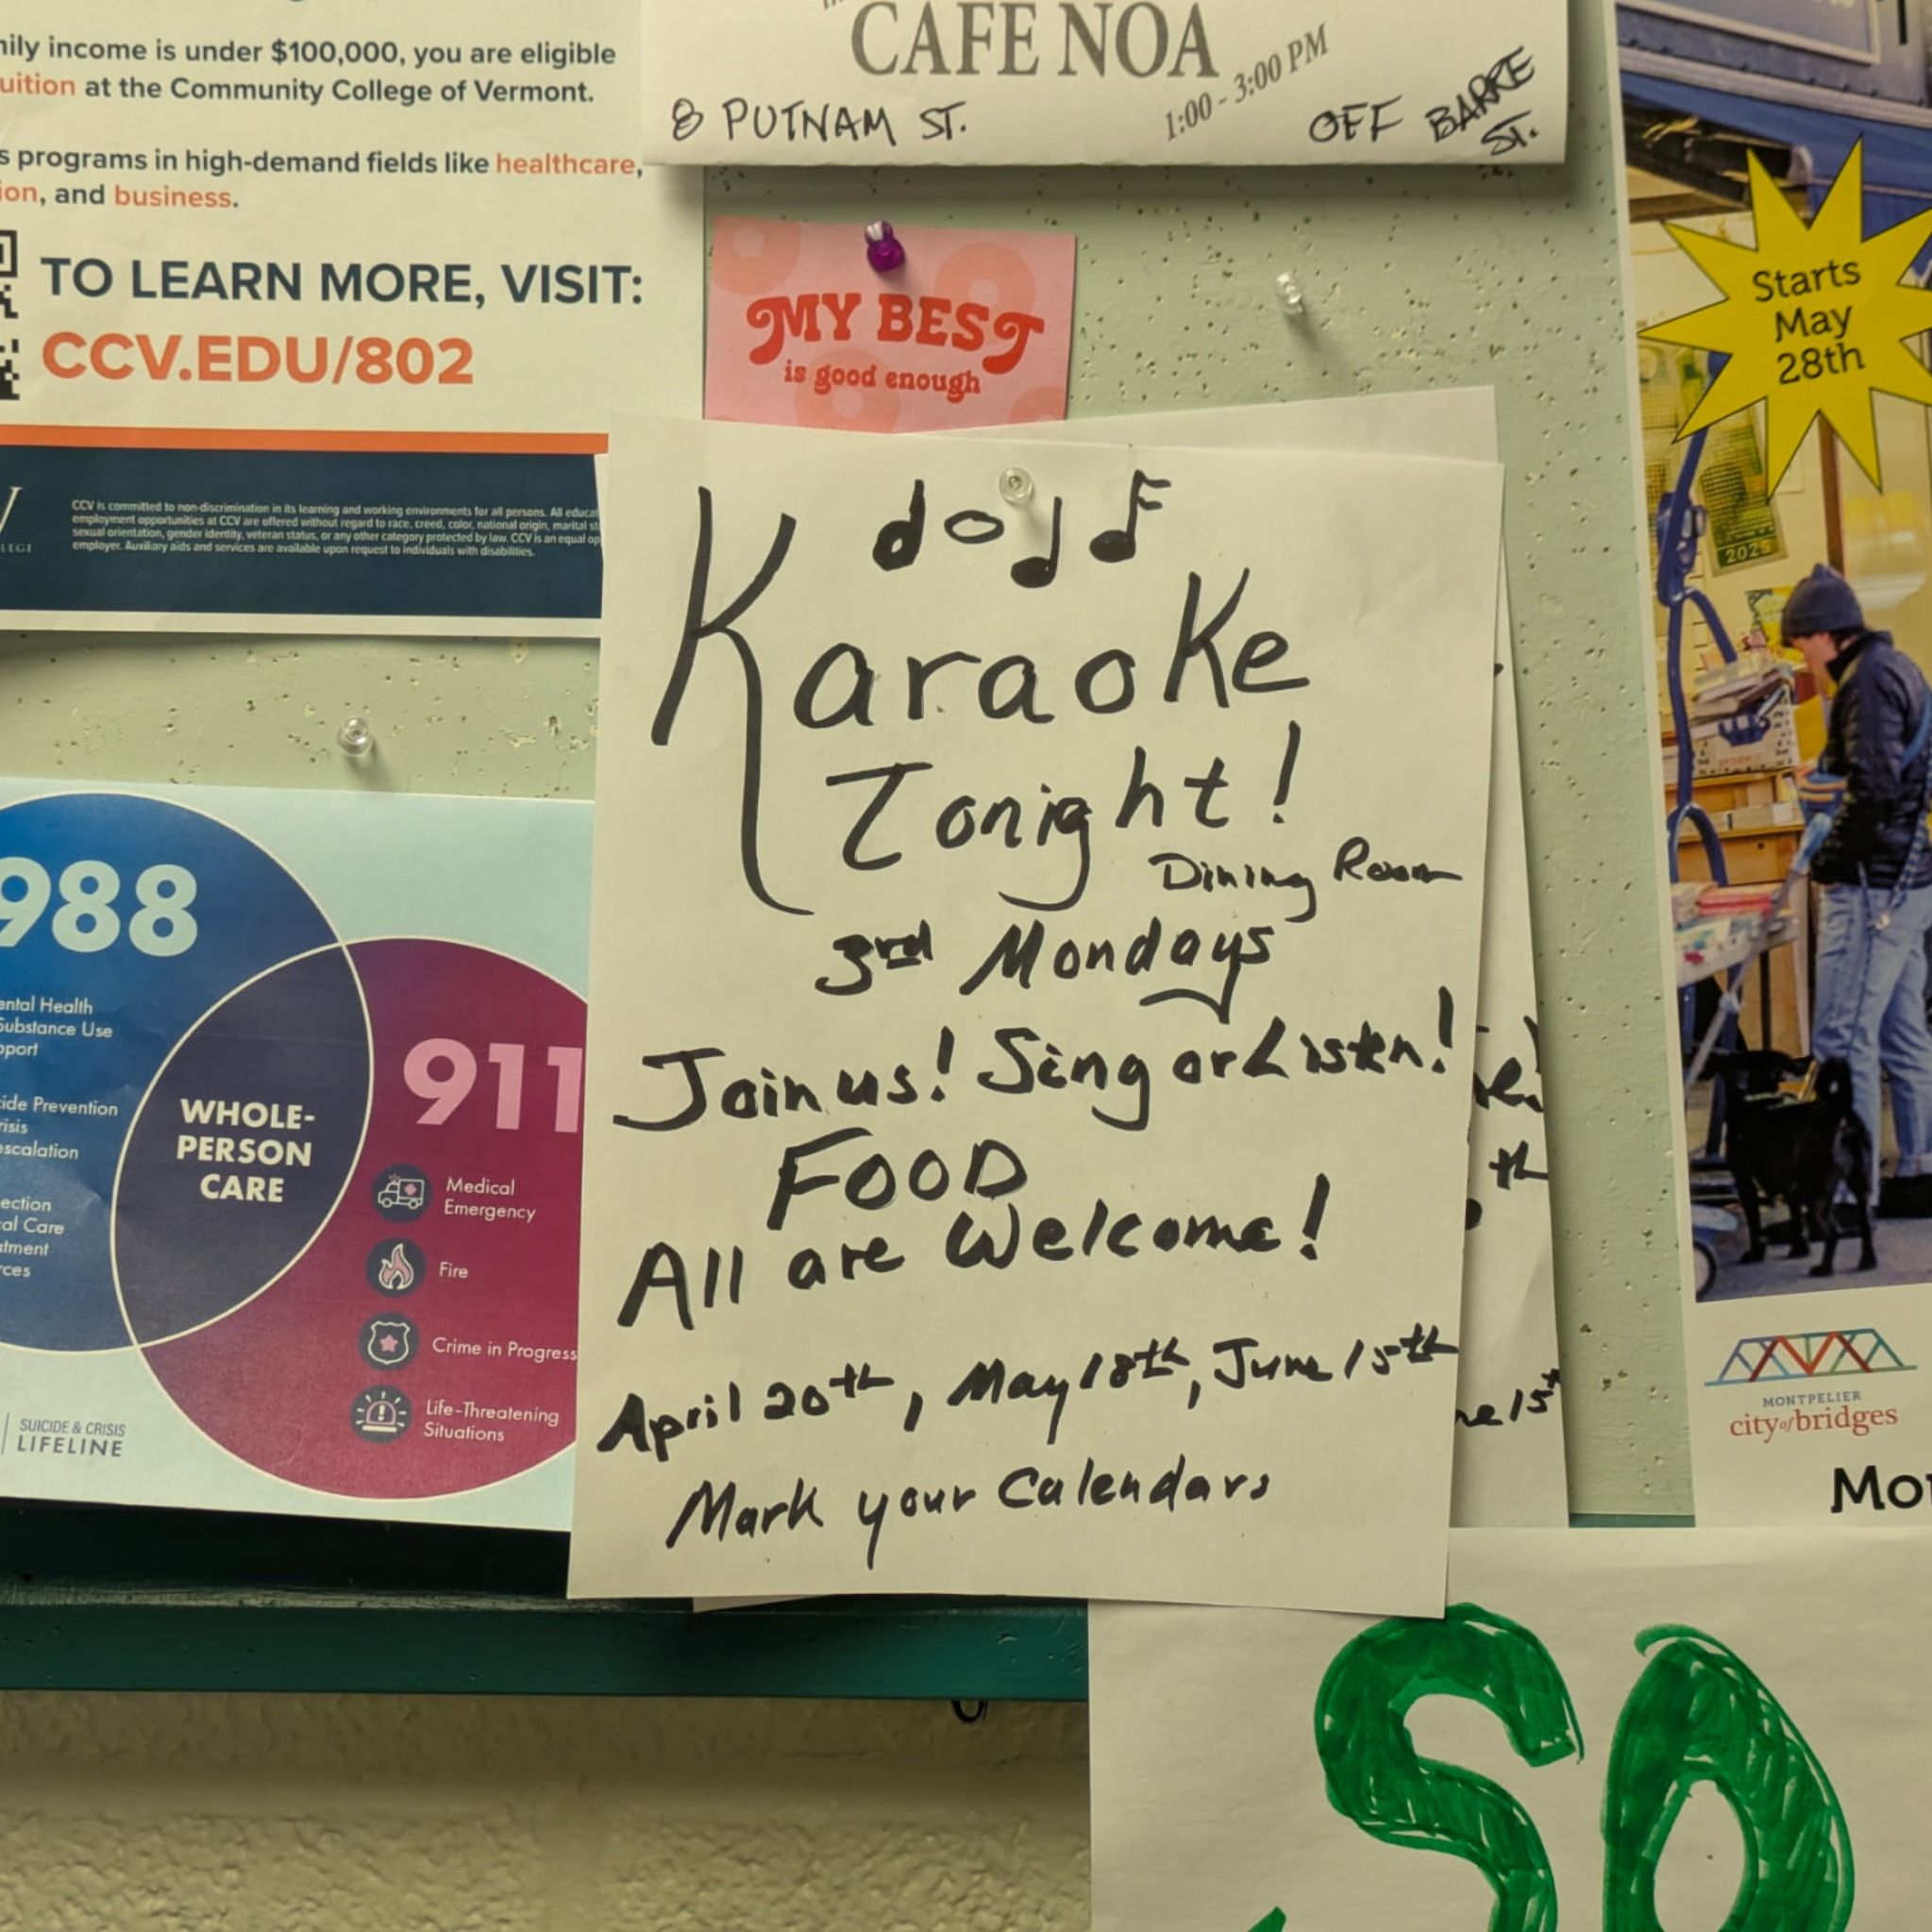 income is under $100,000, you are eligible
at the Community College of Vermont.
programs in high-demand fields like healthcare,
and business.
TO LEARN MORE, VISIT:
CCV.EDU/802
CCV is committed to non-discrimination in its learning and working environments for all persons. All
employment opportunities at CCV are offered without regard to race, creed, color, national origin, marital
sexual orientation, gender identity, veteran status, or any other category protected by law. CCV is an equal
employer. Auxiliary aids and services are available upon request to individuals with disabilities.
CAFE NOA
1:00 - 3:00 PM
8 PUTNAM ST.
OFF BARRE
ST.
MY BEST
is good enough
Starts
May
28th
2025
Karaoke
Tonight!
Dining Room
3rd Mondays
Join us! Sing or Listen!
FOOD
All are Welcome!
April 20th, May 18th, June 15th
Mark your Calendars
15th
988
Health
Substance Use
Prevention
Care
WHOLE-
PERSON
CARE
911
Medical
Emergency
Fire
Crime in Progress
Life-Threatening
Situations
SUICIDE & CRISIS
LIFELINE
MONTPELIER
city of bridges
SO